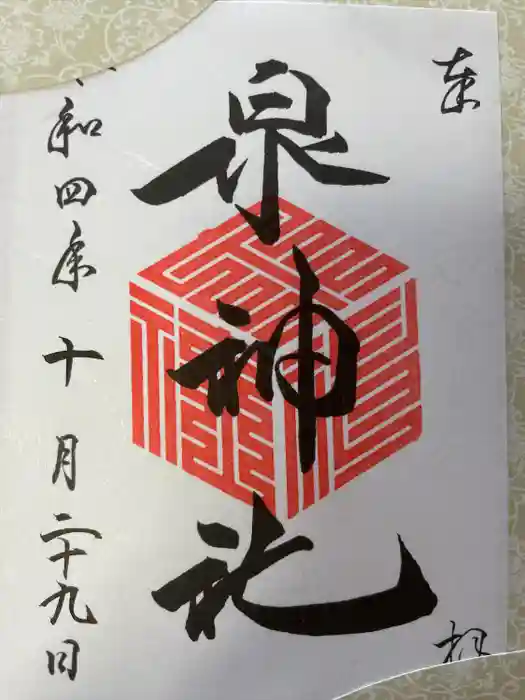 奉
拝
泉神社
和四年十月二十九日